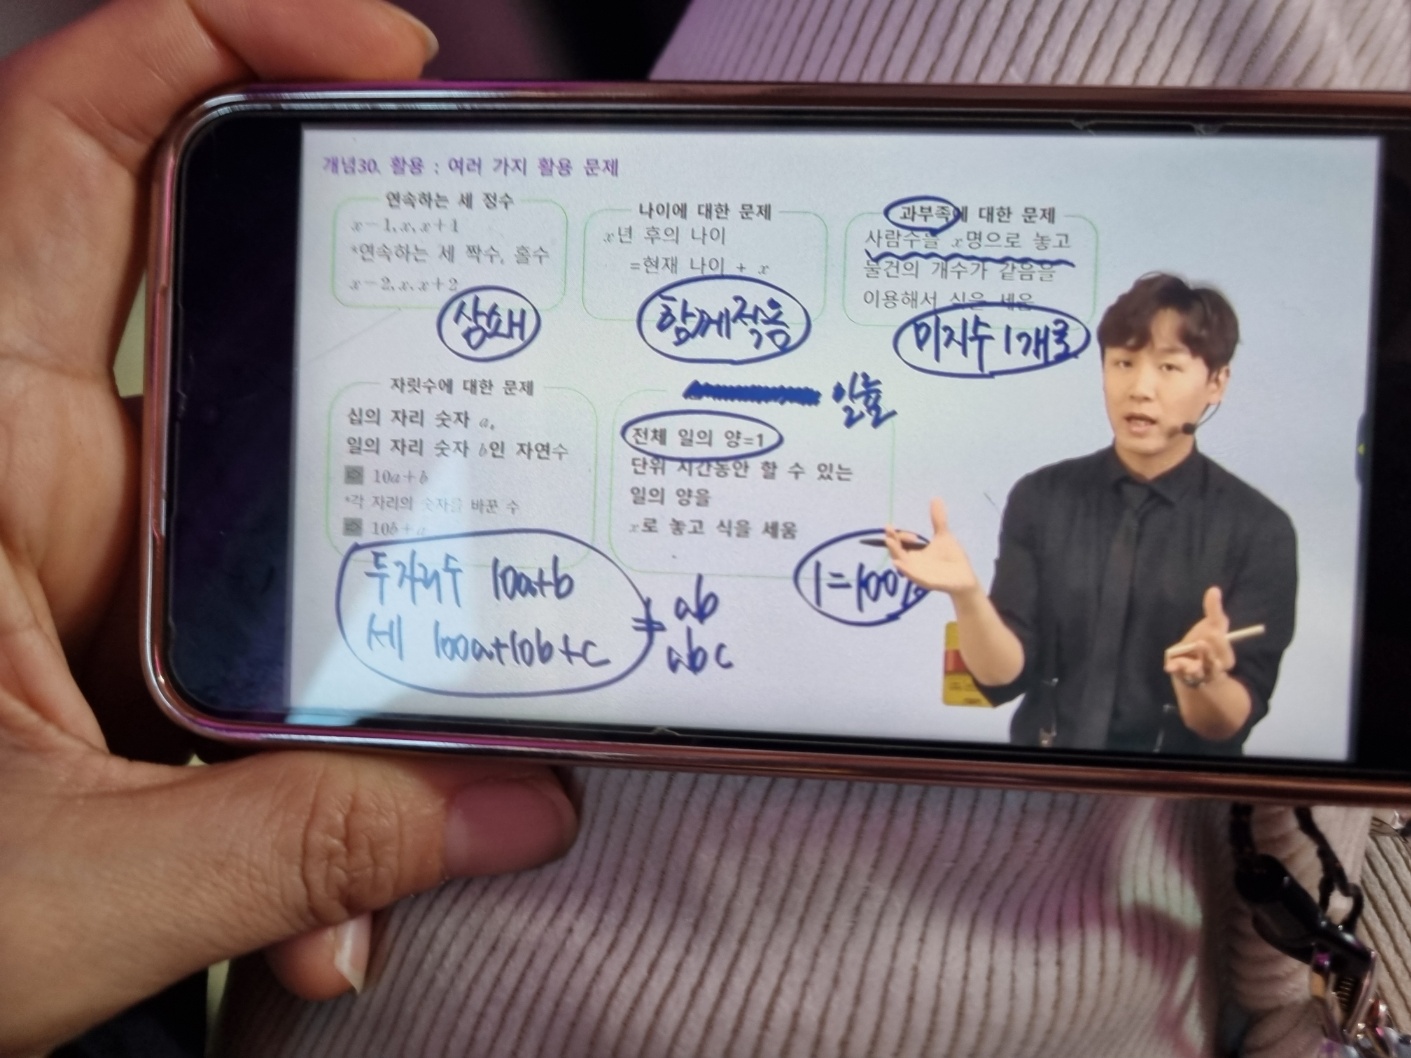 개념30. 활용 : 여러 가지 활용 문제
연속하는 세 정수
x-1, x, x+1
*연속하는 세 짝수, 홀수
x-2, x, x+2
상쇄
나이에 대한 문제
x년 후의 나이
=현재 나이 + x
함께적용
과부족에 대한 문제
사람수를 x명으로 놓고
물건의 개수가 같음을
이용해서 식을 세움
미지수 1개로
자릿수에 대한 문제
십의 자리 숫자 a,
일의 자리 숫자 b인 자연수
10a+b
*각 자리의 숫자를 바꾼 수
10b+a
두자리수 10a+b
세 100a+10b+c
≠ ab
abc
일률
전체 일의 양=1
단위 시간동안 할 수 있는
일의 양을
x로 놓고 식을 세움
1=100%